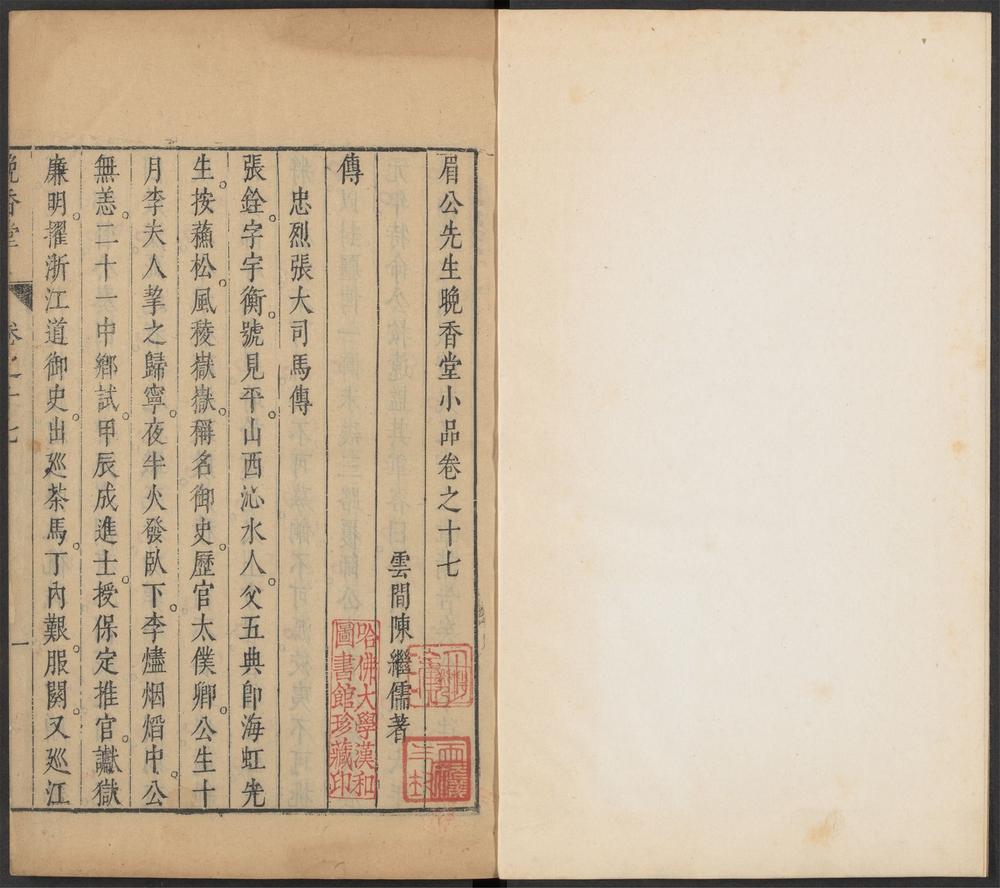 眉公先生晚香堂小品卷之十七
雲間陳繼儒著
傳
忠烈張大司馬傳
張銓。字宇衡。號見平。山西沁水人。父五典卽海虹先
生。按蘇松。風稜嶽嶽。稱名御史。歷官太僕卿。公生十
月李夫人挈之歸寧。夜半火發臥下。李燼烟熖中。公
無恙。二十一中鄉試。甲辰成進士。授保定推官。讞獄
廉明。擢浙江道御史。出廵茶馬。丁內艱。服闋。又廵江
晚香堂
卷之十七
一
哈佛大學漢和
圖書館珍藏印